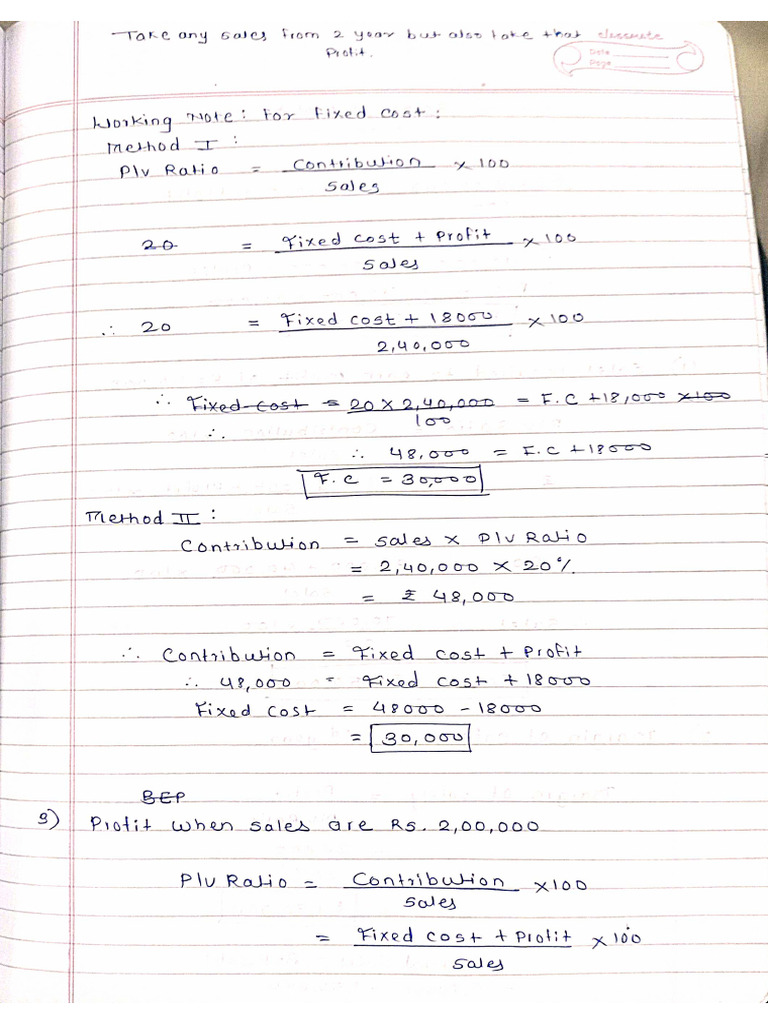 Take any sales from 2 year but also take that
Profit.
classmate
Date
Page
Working Note: For Fixed cost:
Method I :
P/v Ratio = Contribution / Sales × 100
20 = Fixed cost + Profit / Sales × 100
∴ 20 = Fixed cost + 18000 / 2,40,000 × 100
∴ Fixed cost = 20 × 2,40,000 / 100 = F.C + 18,000 × 100
∴
∴ 48,000 = F.C + 18000
F.C = 30,000
Method II :
Contribution = Sales × P/v Ratio
= 2,40,000 × 20%
= ₹ 48,000
∴ Contribution = Fixed cost + Profit
∴ 48,000 = Fixed cost + 18000
Fixed Cost = 48000 - 18000
= 30,000
BEP
3) Profit when sales are Rs. 2,00,000
P/v Ratio = Contribution / Sales × 100
= Fixed cost + Profit / Sales × 100